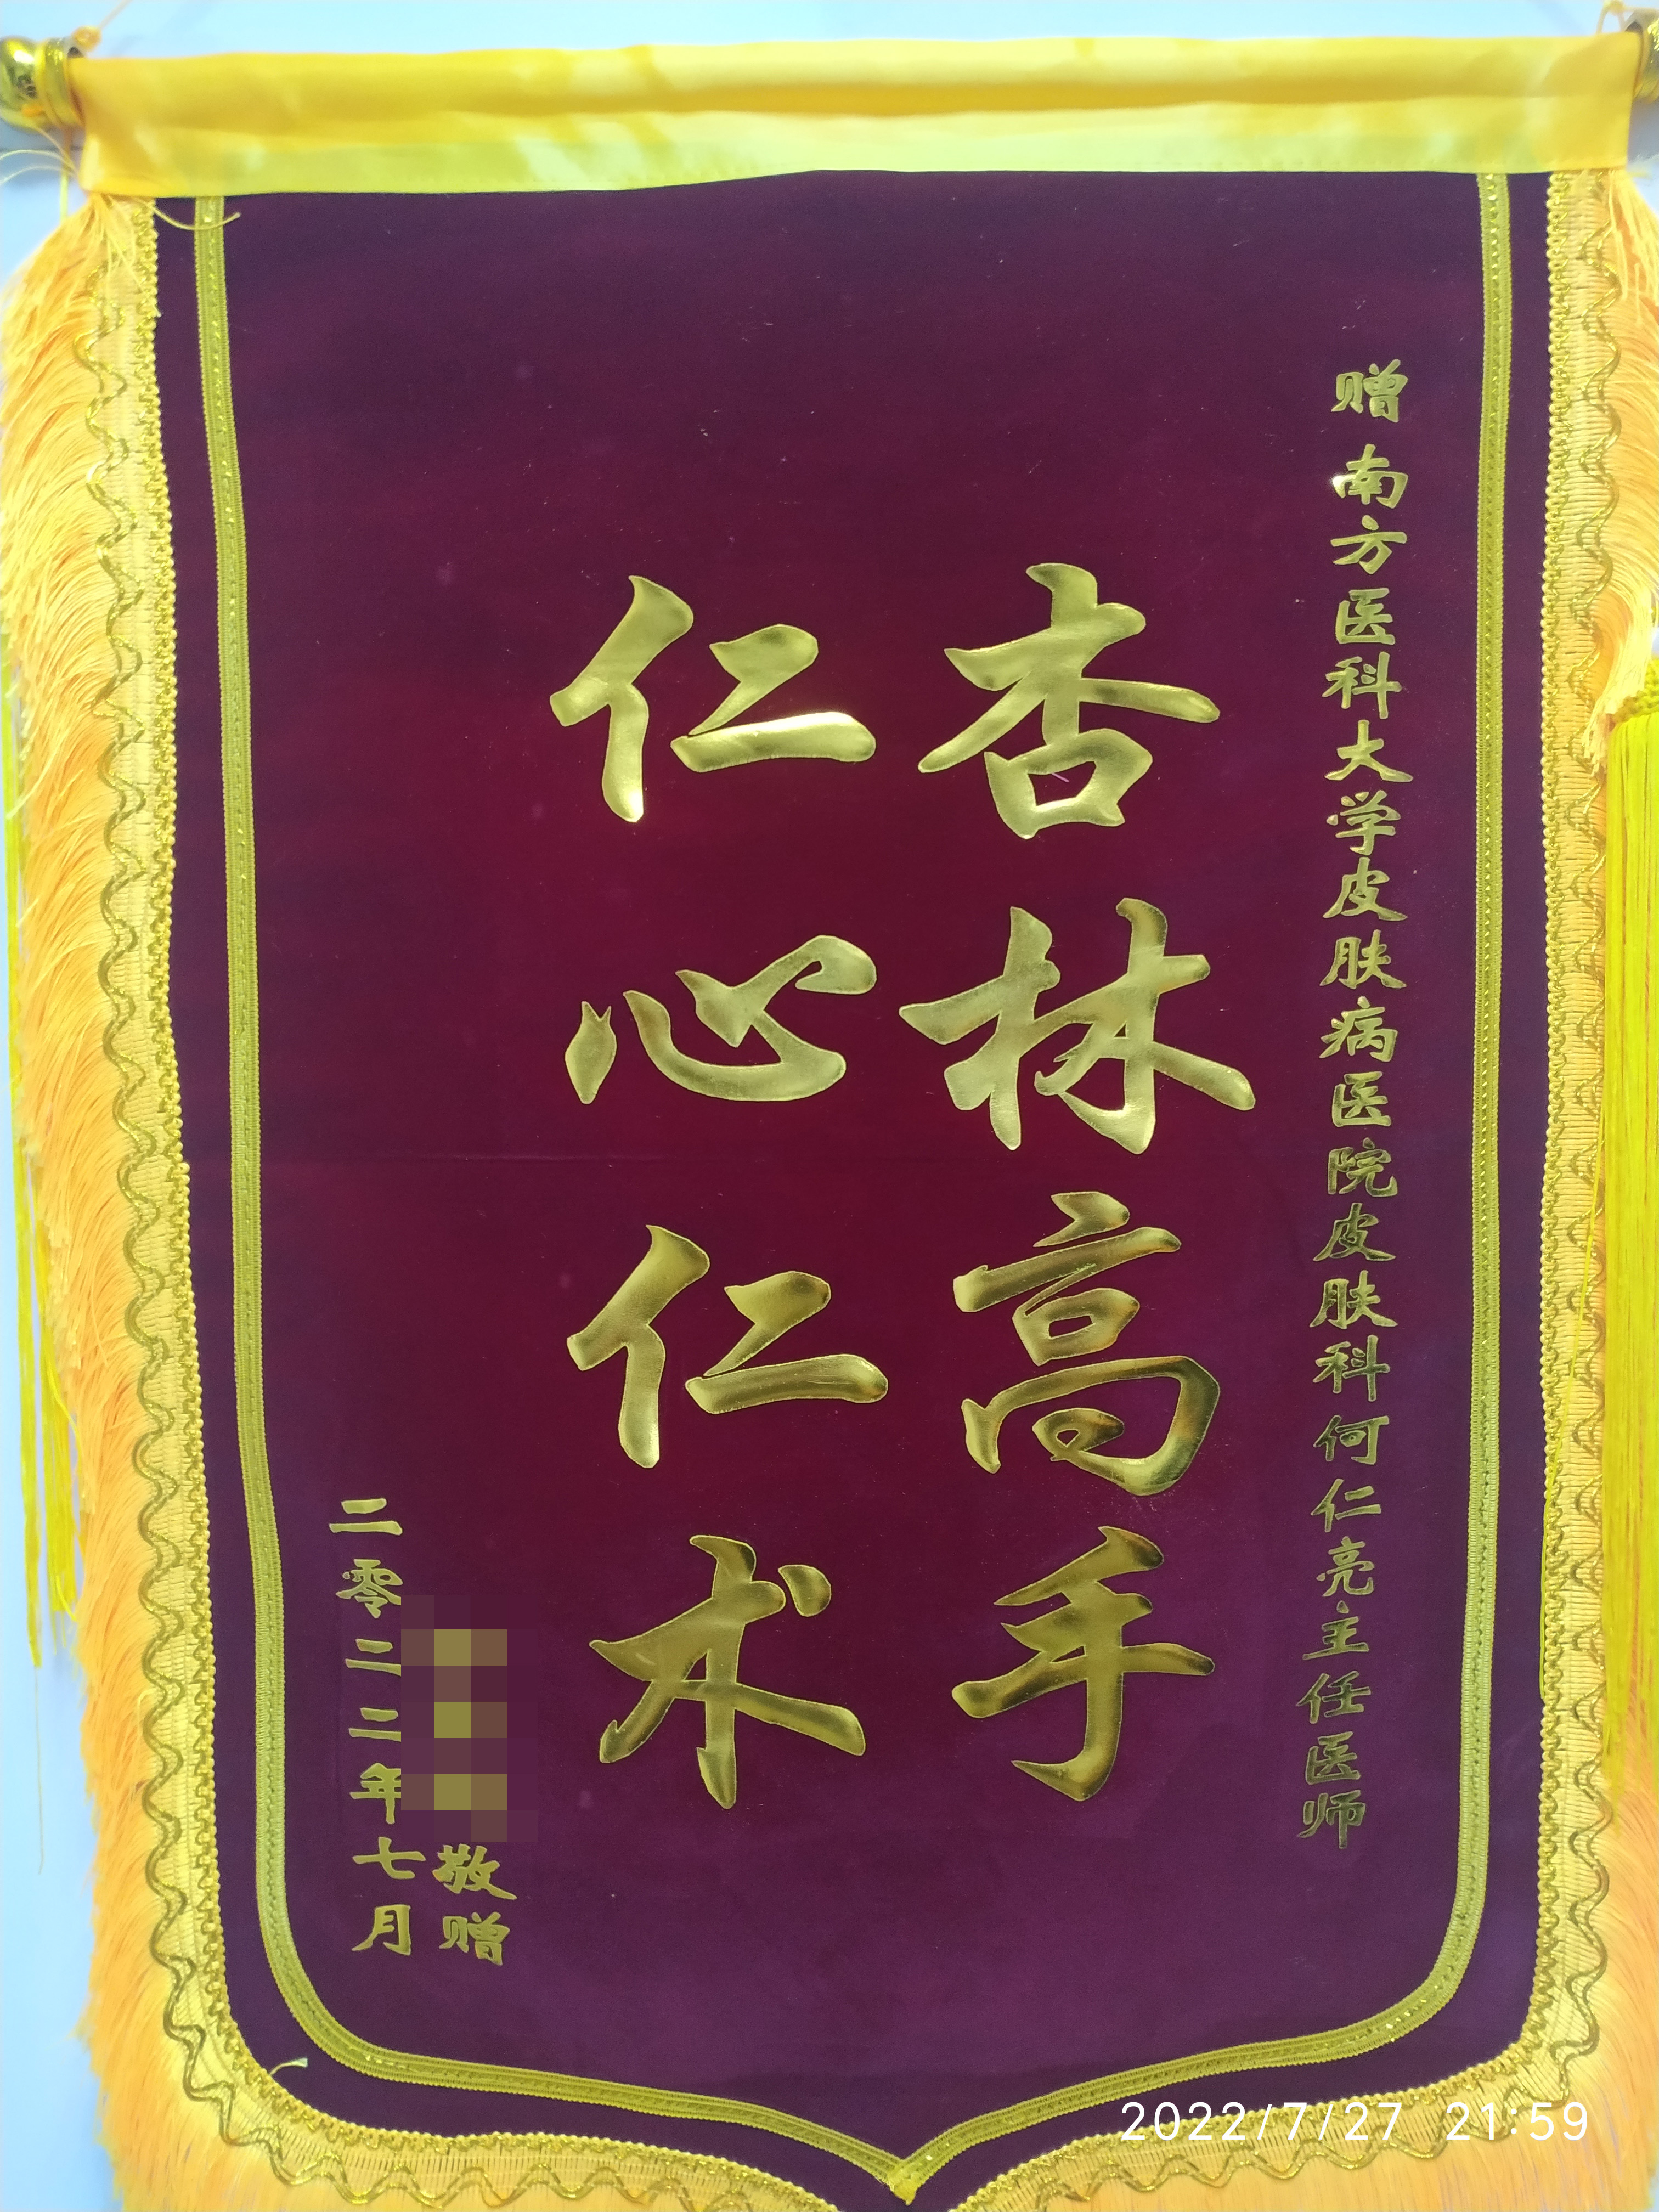 赠 南方医科大学皮肤病医院皮肤科何仁亮主任医师
杏林高手
仁心仁术
敬赠
二零二二年七月
2022/7/27 21:59